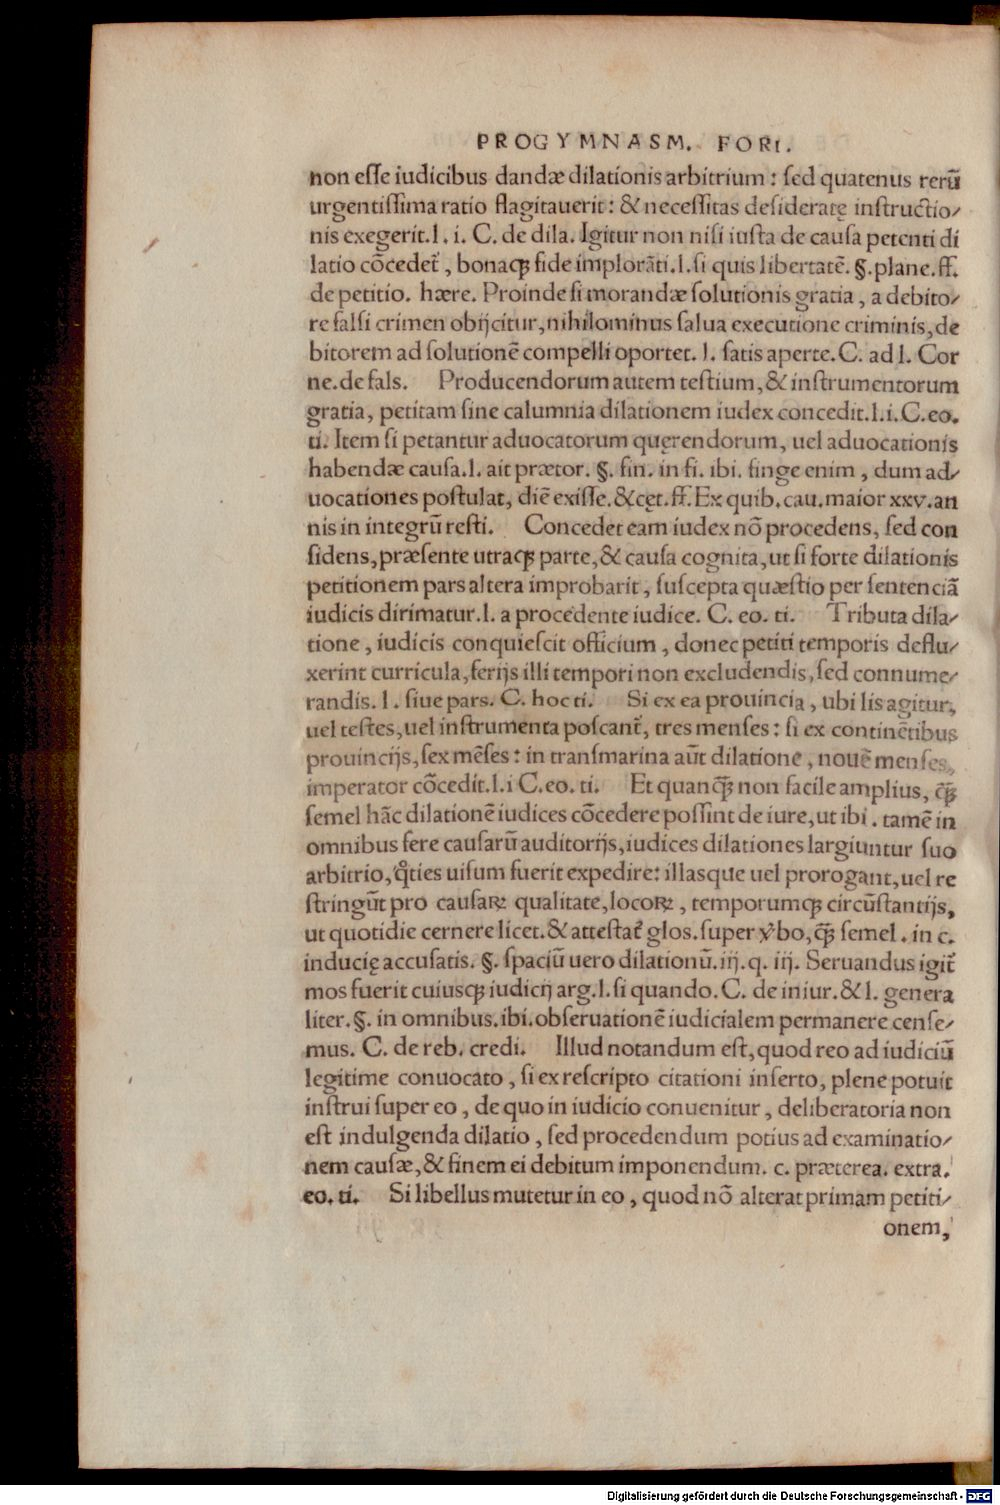 PROGYMNASM. FORI.
non eſſe iudicibus dandæ dilationis arbitrium : ſed quatenus rerū
urgentiſſima ratio flagitauerit : & neceſſitas deſideratę inſtructio/
nis exegerit.l. i. C. de dila. Igitur non niſi iuſta de cauſa petenti di
latio cōcedet̃, bonaqꝫ fide implorāti.l.ſi quis libertatē. §.plane.ff.
de petitio. hære. Proinde ſi morandæ ſolutionis gratia, a debito/
re falſi crimen obijcitur,nihilominus ſalua executione criminis,de
bitorem ad ſolutionē compelli oportet. l. ſatis aperte.C. ad l. Cor
ne.de falſ. Producendorum autem teſtium,& inſtrumentorum
gratia, petitam ſine calumnia dilationem iudex concedit.l.i.C.eo.
ti. Item ſi petantur aduocatorum quęrendorum, uel aduocationis
habendæ cauſa.l. ait prætor. §. fin. in fi. ibi. finge enim, dum ad/
uocationes poſtulat, diē exiſſe.&cęt.ff.Ex quib.cau.maior xxv.an
nis in integrū reſti. Concedet eam iudex nō procedens, ſed con
ſidens,præſente utraqꝫ parte,& cauſa cognita,ut ſi forte dilationis
petitionem pars altera improbarit, ſuſcepta quæſtio per ſentenciā
iudicis dirimatur.l. a procedente iudice. C. eo. ti. Tributa dila/
tione, iudicis conquieſcit officium, donec petiti temporis deflu/
xerint curricula,ferijs illi tempori non excludendis,ſed connume/
randis. l. ſiue pars. C. hoc ti. Si ex ea prouincia, ubi lis agitur,
uel teſtes,uel inſtrumenta poſcant̃, tres menſes: ſi ex continētibus
prouincijs,ſex mēſes: in tranſmarina aūt dilatione, nouē menſes,
imperator cōcedit.l.i C.eo. ti. Et quanꝗ̃ non facile amplius, ꝗ̃
ſemel hāc dilationē iudices cōcedere poſſint de iure,ut ibi. tamē in
omnibus fere cauſarū auditorijs,iudices dilationes largiuntur ſuo
arbitrio,q̊ties uiſum fuerit expedire: illasque uel prorogant,uel re
ſtringūt pro cauſaꝝ qualitate,locoꝝ, temporumqꝫ circūſtantijs,
ut quotidie cernere licet.& atteſtat̃ glos.ſuper ỹbo,ꝗ̃ ſemel. in c.
inducię accuſatis. §. ſpaciū uero dilationū.iij.q. iij. Seruandus igit̃
mos fuerit cuiusqꝫ iudicij arg.l.ſi quando.C. de iniur.& l. genera
liter.§. in omnibus.ibi.obſeruationē iudicialem permanere cenſe/
mus. C. de reb. credi. Illud notandum eſt,quod reo ad iudiciū
legitime conuocato, ſi ex reſcripto citationi inſerto, plene potuit
inſtrui ſuper eo, de quo in iudicio conuenitur, deliberatoria non
eſt indulgenda dilatio, ſed procedendum potius ad examinatio/
nem cauſæ,& finem ei debitum imponendum. c. præterea. extra.
eo. ti. Si libellus mutetur in eo, quod nō alterat primam petiti/
onem,
Digitalisierung gefördert durch die Deutsche Forschungsgemeinschaft - DFG